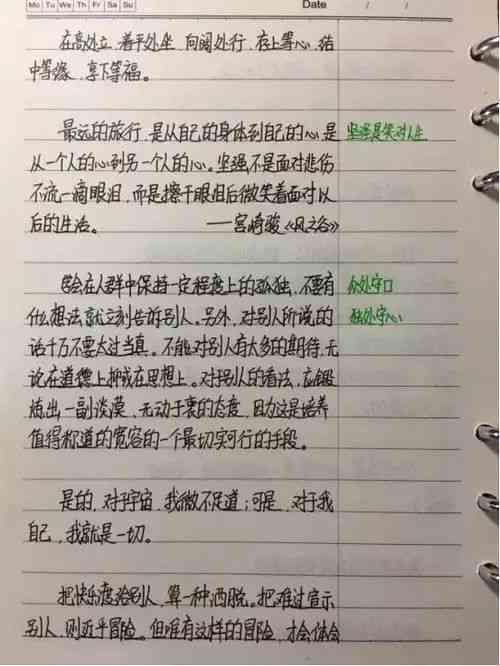 Mo Tu We Th Fr Sa Su
Date / /
在高处立，着平处坐，向阔处行，存上等心，结
中等缘，享下等福。
最远的旅行，是从自己的身体到自己的心，是
坚强是笑对人生
从一个人的心到另一个人的心。坚强不是面对悲伤
不流一滴眼泪，而是擦干眼泪后微笑着面对以
后的生活。 ——宫崎骏《风之谷》
学会在人群中保持一定程度上的孤独，不要有
众处守口
什么想法就立刻告诉别人。另外，对别人所说的
独处守心
话千万不要太过当真。不能对别人有太多的期待，无
论在道德上抑或在思想上。对别人的看法，应锻
炼出一副淡漠，无动于衷的态度，因为这是培养
值得称道的宽容的一个最切实可行的手段。
是的，对于宇宙，我微不足道；可是，对于我
自己，我就是一切。
把快乐渡给别人，算一种洒脱。把难过宣示
别人，则近乎冒险。但唯有这样的冒险，才会体会